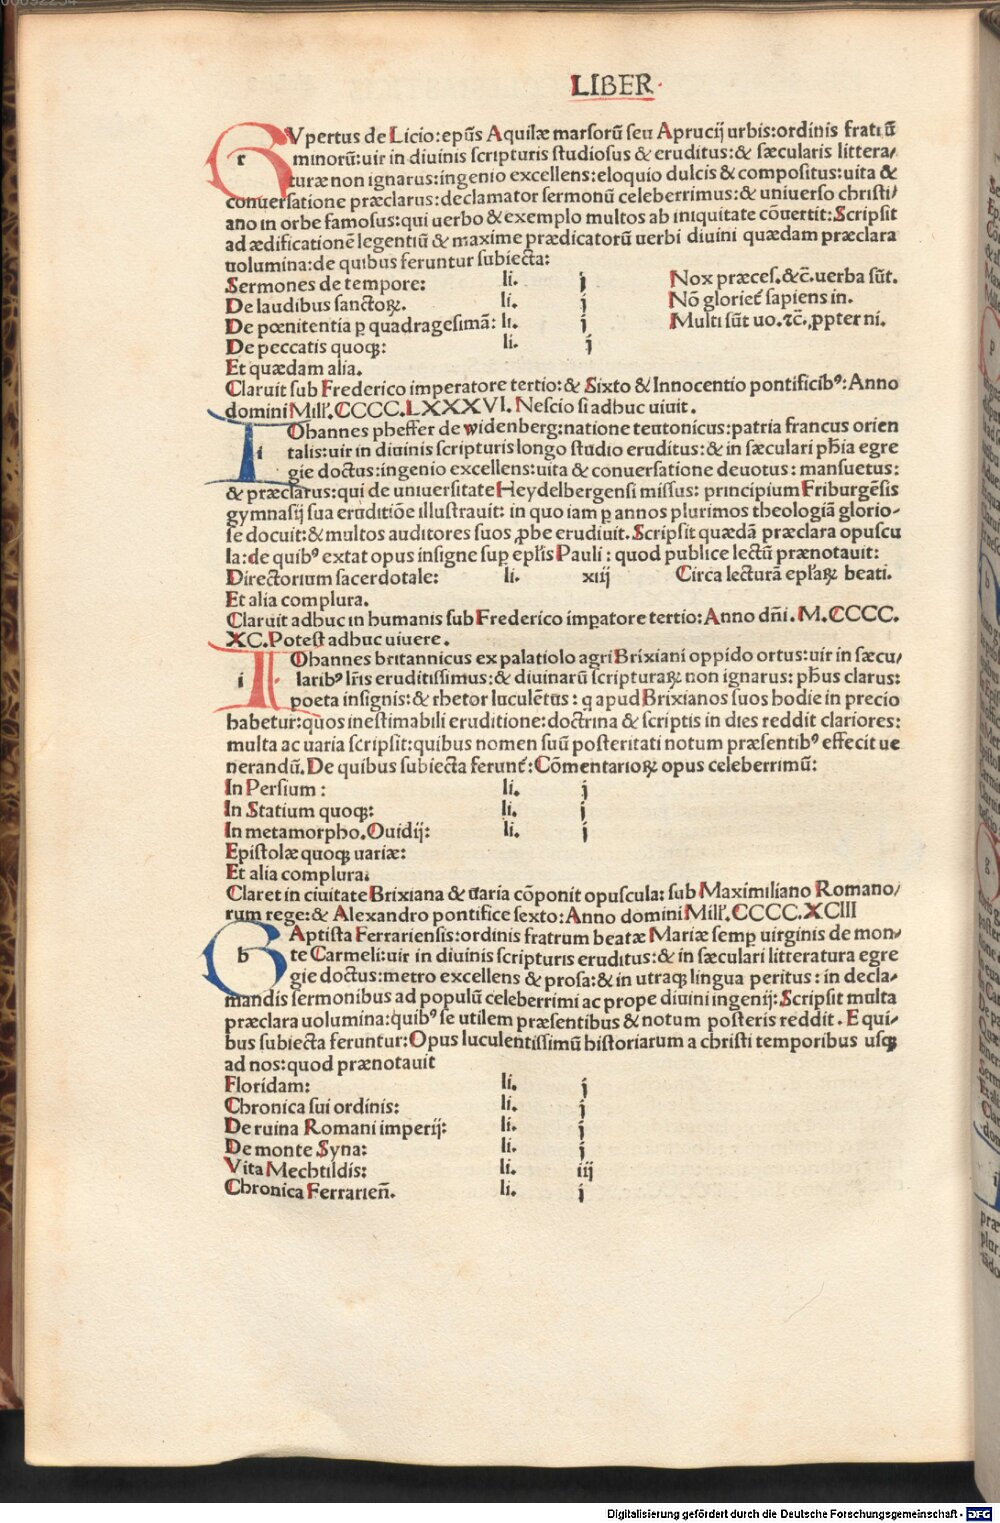 LIBER
r Vpertus de Licio:ep̄us Aquilæ marsorū seu Aprucij urbis:ordinis fratrū
minorū:uir in diuinis scripturis studiosus & eruditus:& sæcularis littera/
turæ non ignarus:ingenio excellens:eloquio dulcis & compositus:uita &
conuersatione præclarus:declamator sermonū celeberrimus:& uniuerso christi/
ano in orbe famosus:qui uerbo & exemplo multos ab iniquitate cōuertit:Scripsit
ad ædificationē legentiū & maxime prædicatorū uerbi diuini quædam præclara
uolumina:de quibus feruntur subiecta:
Sermones de tempore: li. j Nox præces.&c̄.uerba sūt.
De laudibus sanctoꝝ. li. j Nō glorieť sapiens in.
De pœnitentia ꝑ quadragesimā: li. j Multi sūt uo.⁊c̄.ꝓpter ni.
De peccatis quoqꝫ: li. j
Et quædam alia.
Claruit sub Frederico imperatore tertio:& Sixto & Innocentio pontificibꝰ:Anno
domini Mill'.CCCC.LXXXVI.Nescio si adhuc uiuit.
i Ohannes pheffer de widenberg:natione teutonicus:patria francus orien
talis:uir in diuinis scripturis longo studio eruditus:& in sæculari ph̄ia egre
gie doctus:ingenio excellens:uita & conuersatione deuotus: mansuetus:
& præclarus:qui de uniuersitate Heydelbergensi missus: principium Friburgēsis
gymnasij sua eruditiōe illustrauit: in quo iam ꝑ annos plurimos theologiā glorio-
se docuit:& multos auditores suos ꝓbe erudiuit.Scripsit quædā præclara opuscu
la:de quibꝰ extat opus insigne suꝑ epl̄is Pauli: quod publice lectū prænotauit:
Directorium sacerdotale: li. xiij Circa lecturā epl̄aꝝ beati.
Et alia complura.
Claruit adhuc in humanis sub Frederico imꝑatore tertio: Anno dn̄i.M.CCCC.
XC.Potest adhuc uiuere.
i Ohannes britannicus ex palatiolo agri Brixiani oppido ortus:uir in sæcu/
laribꝰ l̄ris eruditissimus:& diuinarū scripturaꝝ non ignarus: ph̄us clarus:
poeta insignis:& rhetor luculētus: q apud Brixianos suos hodie in precio
habetur:quos inestimabili eruditione:doctrina & scriptis in dies reddit clariores:
multa ac uaria scripsit:quibus nomen suū posteritati notum præsentibꝰ effecit ue
nerandū.De quibus subiecta ferunť:Cōmentarioꝝ opus celeberrimū:
In Persium: li. j
In Statium quoqꝫ: li. j
In metamorpho.Ouidij: li. j
Epistolæ quoqꝫ uariæ:
Et alia complura:
Claret in ciuitate Brixiana & uaria cōponit opuscula: sub Maximiliano Romano/
rum rege:& Alexandro pontifice sexto:Anno domini Mill'.CCCC.XCIII
b Aptista Ferrariensis:ordinis fratrum beatæ Mariæ semꝑ uirginis de mon/
te Carmeli:uir in diuinis scripturis eruditus:& in sæculari litteratura egre
gie doctus:metro excellens & prosa:& in utraqꝫ lingua peritus: in decla/
mandis sermonibus ad populū celeberrimi ac prope diuini ingenij:Scripsit multa
præclara uolumina:quibꝰ se utilem præsentibus & notum posteris reddit.E qui/
bus subiecta feruntur:Opus luculentissimū historiarum a christi temporibus usqꝫ
ad nos:quod prænotauit
Floridam: li. j
Chronica sui ordinis: li. j
De ruina Romani imperij: li. j
De monte Syna: li. j
Vita Mechtildis: li. iij
Chronica Ferrarieñ. li. j
Digitalisierung gefördert durch die Deutsche Forschungsgemeinschaft - DFG